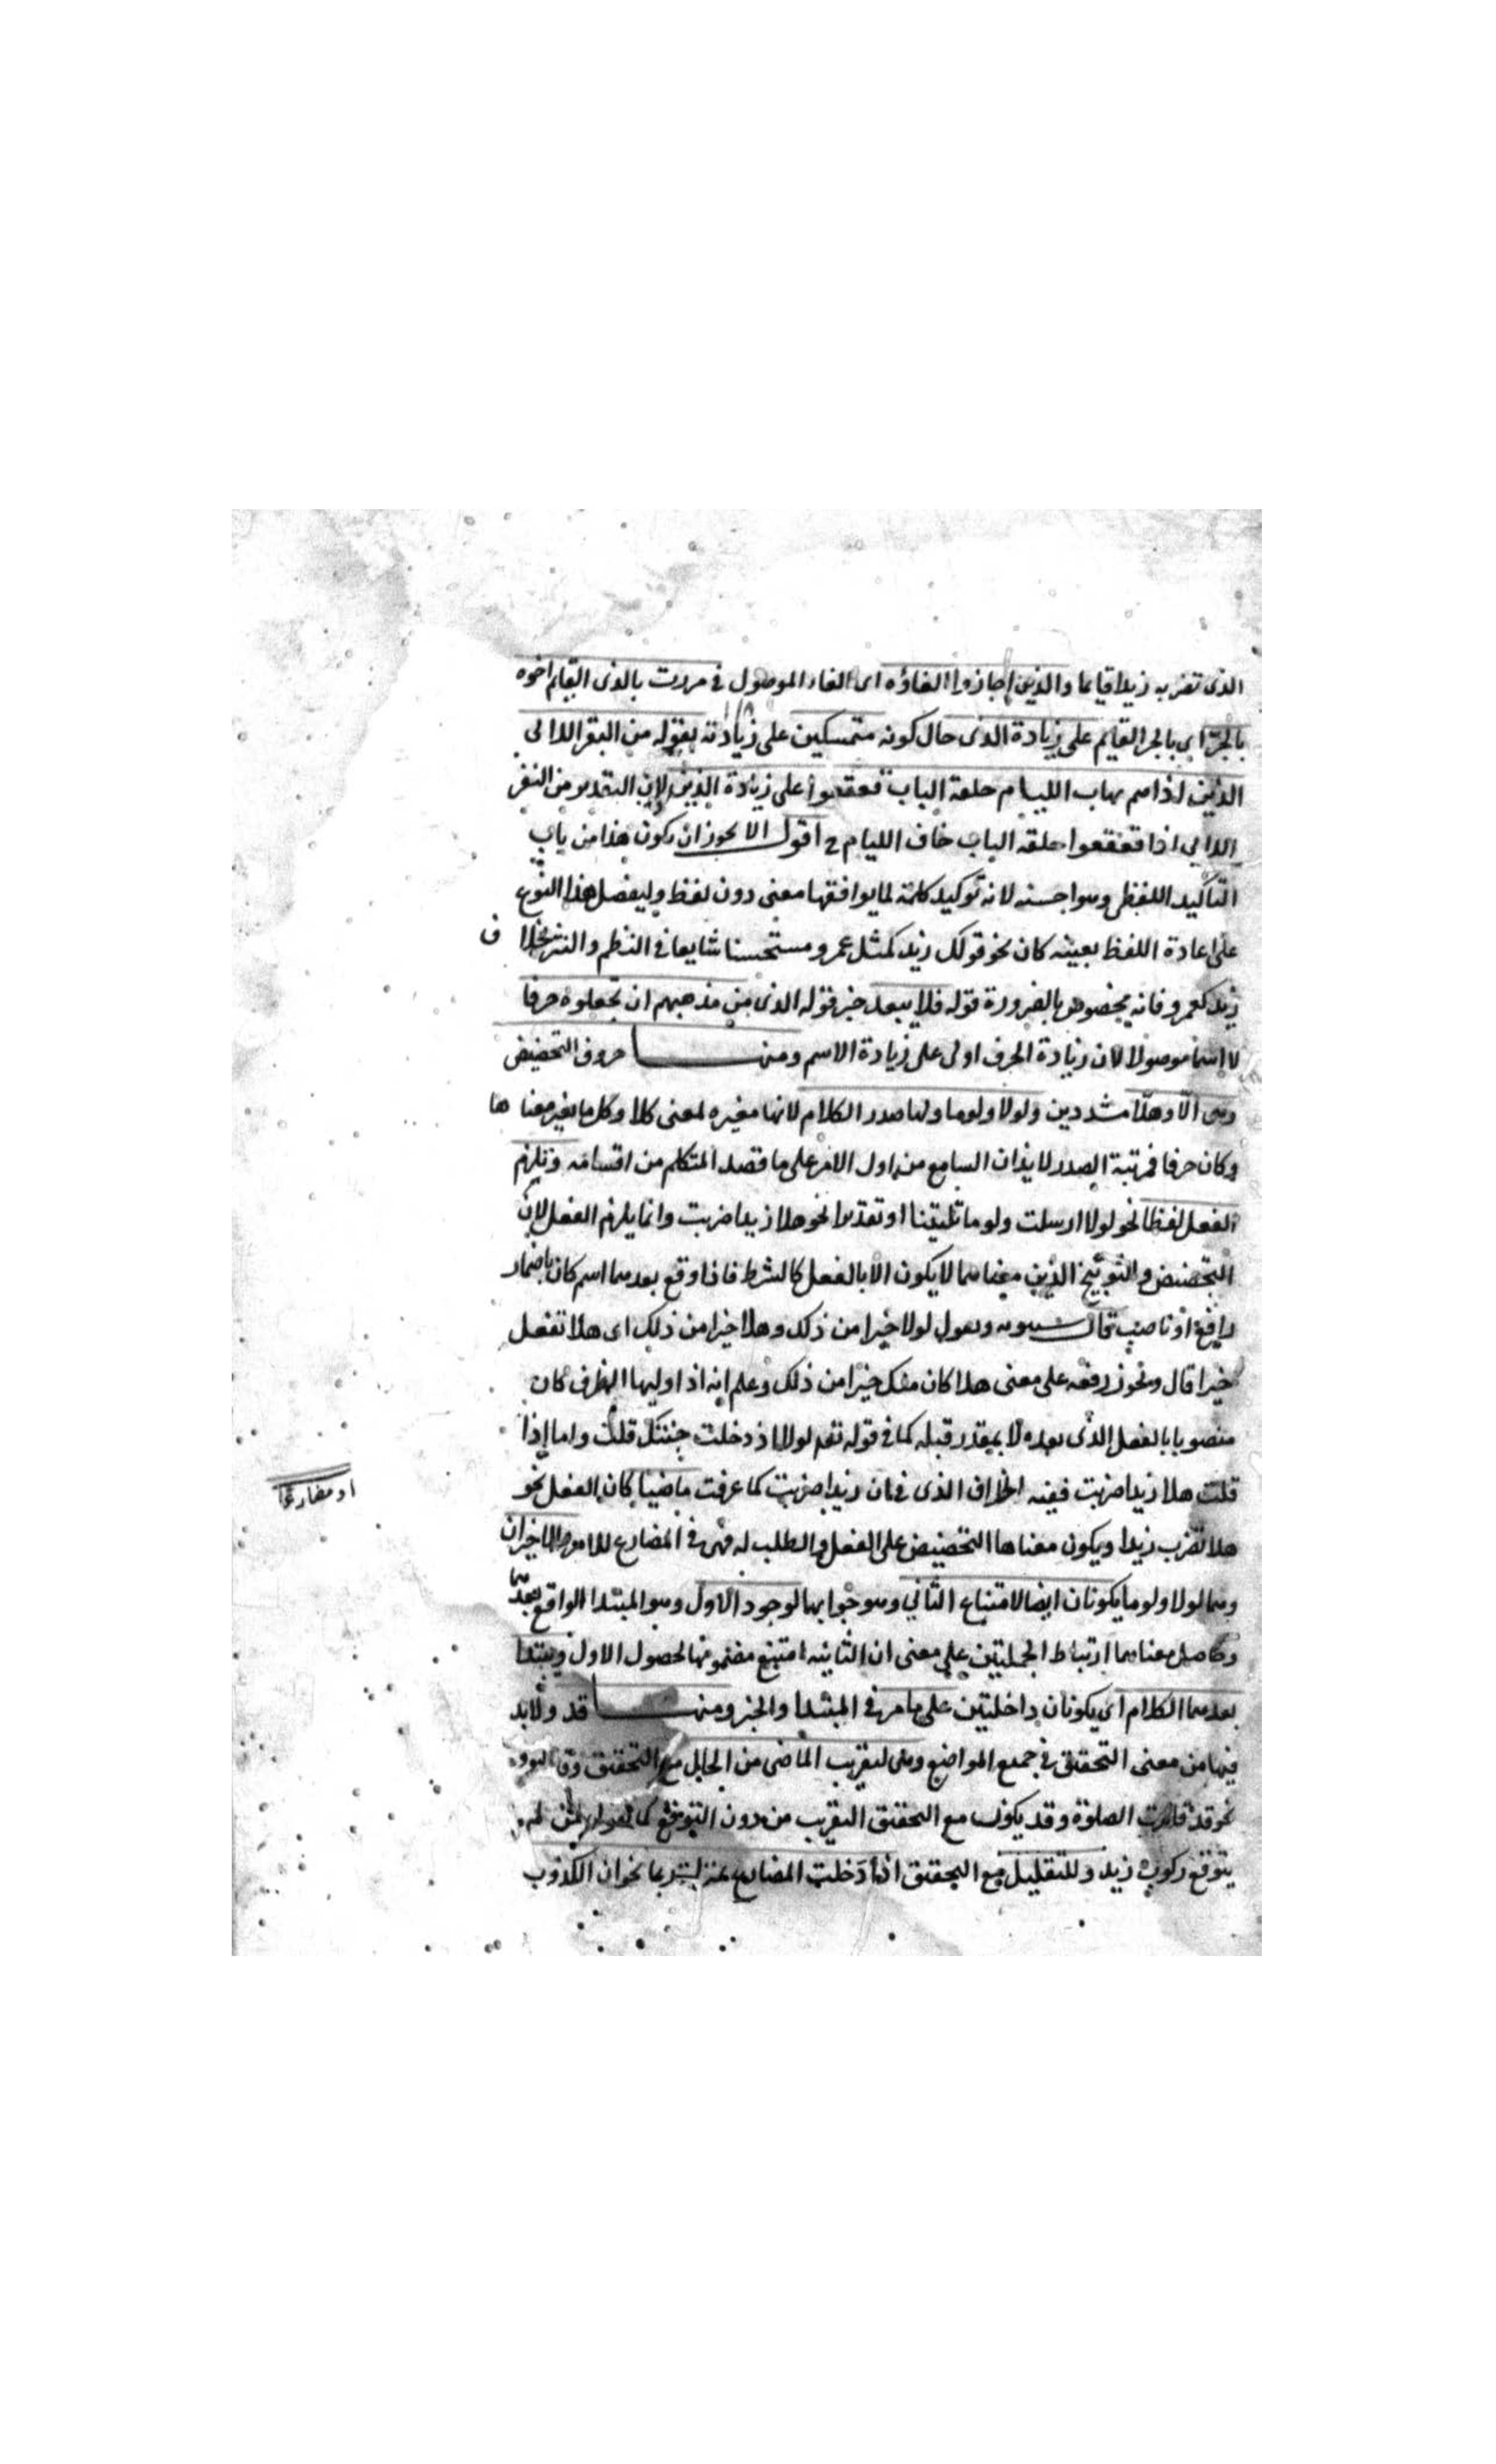 الذى تضربه زيدا قايما والذين اجازوا الغاؤه اى الغاء الموصول فى مررت بالذى القايم اخوه
بالجر اى بالجر القايم على زيادة الذى حال كونه متمسكين على زيادته بقوله من النفر اللاءى
الذين اذا هم يهاب الليام حلقة الباب قعقعوا على زيادة الذين لان التقدير من النفر
اللاءى اذا قعقعوا حلقه الباب خاف الليام ح اقول الا يجوز ان يكون هذا من باب
التاكيد اللفظى وهو احسنه لانه توكيد كلمة لما يوافقها معنى دون لفظ وليفضل هذا النوع
على اعادة اللفظ بعينه كان نحو قولك زيد كمثل عمرو مستحسنا شايعا فى النظم والنثر بخلاف
زيد كعمرو فانه مخصوص بالضرورة قوله فلا يبعد خبر قوله الذى من مذهبهم ان يجعلوه حرفا
لا اسما موصولا لان زيادة الحرف اولى على زيادة الاسم ومنها حروف التحضيض
وهى الّا وهلّا مشددين ولولا ولوما ولها صدر الكلام لانها مغيره لمعنى كلا وكل ما يغير معناها
وكان حرفا فمرتبة الصدر لايذان السامع من اول الامر على ما قصد المتكلم من اقسامه ويلزم
الفعل لفظا نحو لولا ارسلت ولو ما تاتينا او تقديرا نحو هلا زيدا ضربت وانما يلزم الفعل لان
التحضيض والتوبيخ الذين معناهما لا يكون الا بالفعل كالشرط فاذا وقع بعدهما اسم كان باضمار
رافع او ناصب قال سيبويه وتقول لولا خيرا من ذلك وهلا خيرا من ذلك اى هلا تفعل
خيرا قال ويجوز رفعه على معنى هلا كان منك خير من ذلك وعلم انه اذا وليها الظرف كان
منصوبا بالفعل الذى بعده لا بمقدر قبله كما فى قوله تعم لولا اذ دخلت جنتك قلت واما اذا
قلت هلا زيدا ضربت ففيه الخلاف الذى فى ان زيدا ضربت كما عرفت ماضيا كان الفعل نحو
او مضارعا
هلا تضرب زيدا ويكون معناها التحضيض على الفعل والطلب له فهى فى المضارع للامر والاخيران
وهما لولا ولوما يكونان ايضا لامتناع الثانى وهو جوابها لوجود الاول وهو المبتدا الواقع بعدهما
وحاصل معناهما ارتباط الجملتين على معنى ان الثانيه امتنع مضمونها لحصول الاول ويبتدا
بعدهما الكلام اى يكونان داخلتين على ما مر فى المبتدا والخبر ومنها قد ولا بد
فيها من معنى التحقيق فى جميع المواضع وهى لتقريب الماضى من الحال مع التحقيق
نحو قد قامت الصلوة وقد يكون مع التحقيق التقريب من دون التوقع كما تقول لمن لم
يتوقع ركوب زيد وللتقليل مع التحقيق اذا دخلت المضارع بمنزلة ربما نحو ان الكذوب